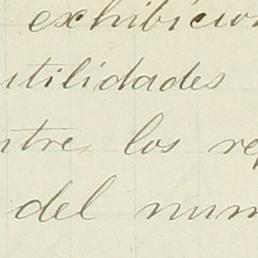 exhibicion
utilidades
ntre los rep
del num